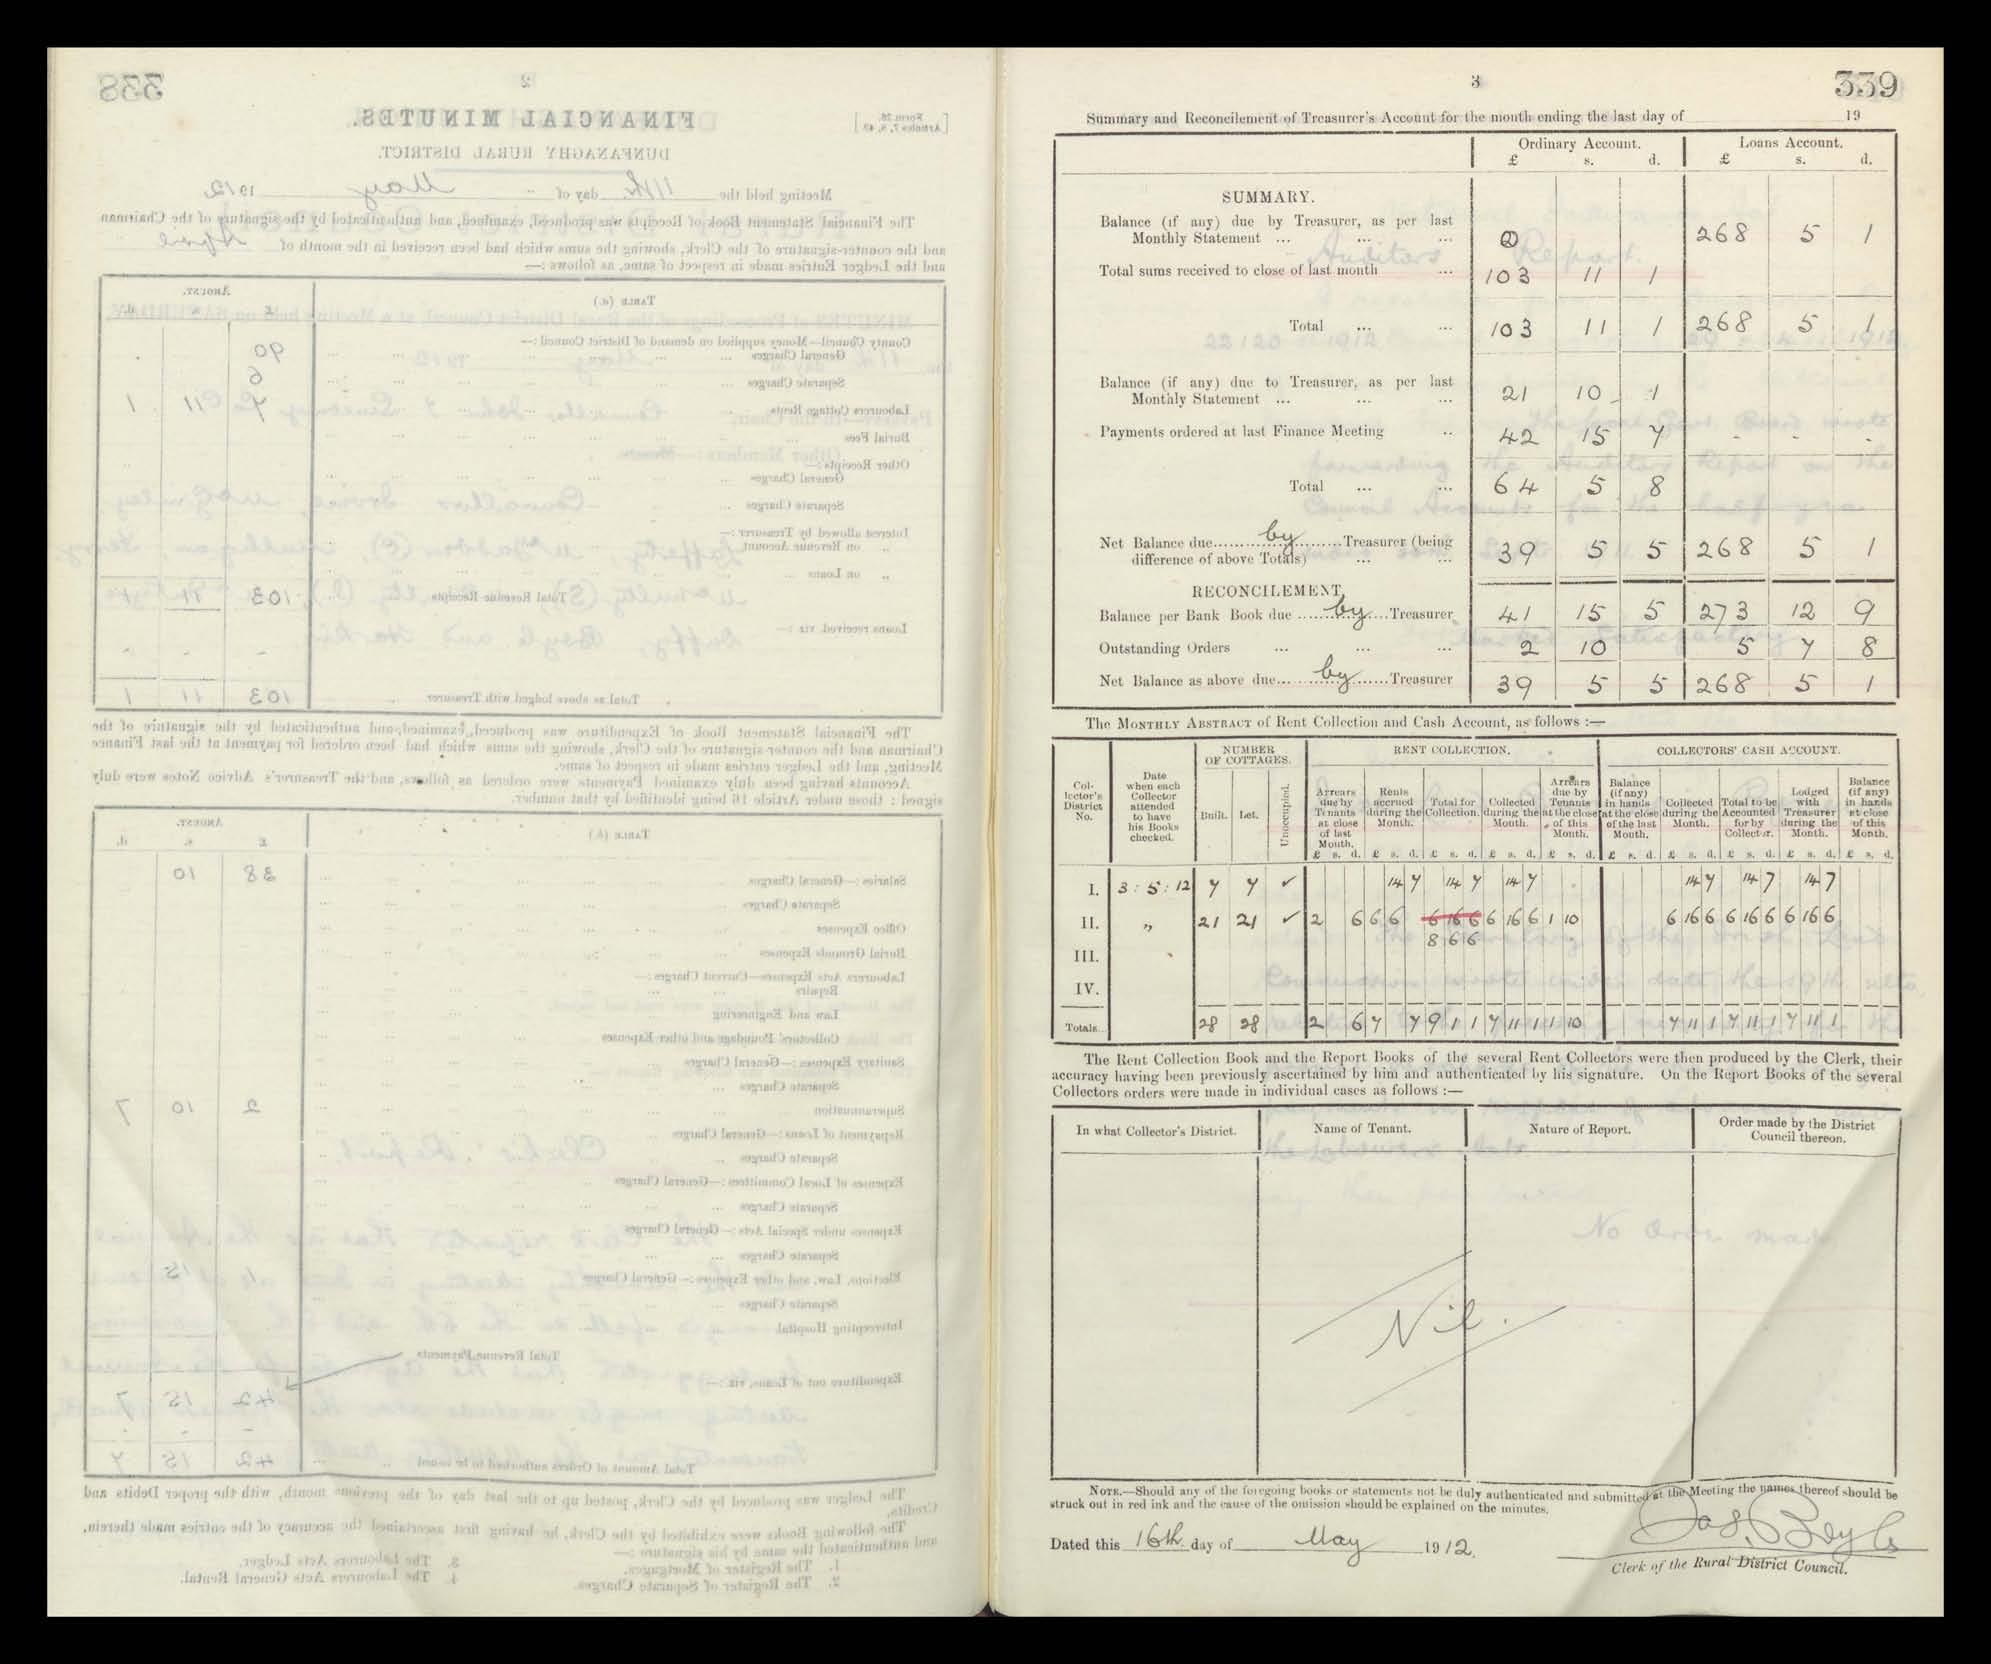 338
2
FINANCIAL MINUTES.
[Form 26. Articles 7, 8, 43]
DUNFANAGHY RURAL DISTRICT.
Meeting held the 11th day of May 1912
The Financial Statement Book of Receipts was produced, examined, and authenticated by the signature of the Chairman
and the counter-signature of the Clerk, showing the sums which had been received in the month of April
and the Ledger Entries made in respect of same, as follows :—
TABLE (a.) AMOUNT.
County Council—Money supplied on demand of District Council :—
General Charges 90
Separate Charges 6
Labourers Cottage Rents 7 11 1
Burial Fees
Other Receipts :—
General Charges
Separate Charges
Interest allowed by Treasurer :—
„ on Revenue Account
„ on Loans
Total Revenue Receipts 103 11 1
Loans received, viz :—
Total as above lodged with Treasurer 103 11 1
The Financial Statement Book of Expenditure was produced, examined, and authenticated by the signature of the
Chairman and the counter signature of the Clerk, showing the sums which had been ordered for payment at the last Finance
Meeting, and the Ledger entries made in respect of same.
Accounts having been duly examined Payments were ordered as follows, and the Treasurer's Advice Notes were duly
signed : those under Article 16 being identified by that number.
TABLE (b.) AMOUNT.
£ s. d.
Salaries :—General Charges 38 10
Separate Charges
Office Expenses
Burial Grounds Expenses
Labourers Acts Expenses—Current Charges :—
Repairs
Law and Engineering
Collectors' Poundage and other Expenses
Sanitary Expenses :—General Charges
Separate Charges
Superannuation 2 10 7
Repayment of Loans :—General Charges
Separate Charges
Expenses of Local Committees :—General Charges
Separate Charges
Expenses under Special Acts :—General Charges
Separate Charges
Elections, Law, and other Expenses :—General Charges 1 15
Separate Charges
Intercepting Hospital
Total Revenue Payments 42 15 7
Expenditure out of Loans, viz :—
Total Amount of Orders authorised to be issued 42 15 7
The Ledger was produced by the Clerk, posted up to the last day of the previous month, with the proper Debits and
Credits.
The following Books were exhibited by the Clerk, he having first ascertained the accuracy of the entries made therein,
and authenticated the same by his signature :—
1. The Register of Mortgages. 3. The Labourers Acts Ledger.
2. The Register of Separate Charges. 4. The Labourers Acts General Rental.
3
339
Summary and Reconcilement of Treasurer's Account for the month ending the last day of 19
Ordinary Account. Loans Account.
£ s. d. £ s. d.
SUMMARY.
Balance (if any) due by Treasurer, as per last
Monthly Statement ... 0 268 5 1
Total sums received to close of last month ... 103 11 1
Total ... 103 11 1 268 5 1
Balance (if any) due to Treasurer, as per last
Monthly Statement ... 21 10 1
Payments ordered at last Finance Meeting .. 42 15 7 - - -
Total ... 64 5 8
Net Balance due by Treasurer (being
difference of above Totals) 39 5 5 268 5 1
RECONCILEMENT
Balance per Bank Book due by Treasurer 41 15 5 273 12 9
Outstanding Orders 2 10 5 7 8
Net Balance as above due by Treasurer 39 5 5 268 5 1
The MONTHLY ABSTRACT of Rent Collection and Cash Account, as follows :—
Collector's District No.
Date when each Collector attended to have his Books checked.
NUMBER OF COTTAGES.
Built. Let. Unoccupied.
RENT COLLECTION.
Arrears due by Tenants at close of last Month.
Rents accrued during the Month.
Total for Collection.
Collected during the Month.
Arrears due by Tenants at the close of this Month.
COLLECTORS' CASH ACCOUNT.
Balance (if any) in hands at the close of the last Month.
Collected during the Month.
Total to be Accounted for by Collector.
Lodged with Treasurer during the Month.
Balance (if any) in hands at close of this Month.
£ s. d. £ s. d. £ s. d. £ s. d. £ s. d. £ s. d. £ s. d. £ s. d. £ s. d. £ s. d.
I. 3 : 5 : 12 7 7 ✓ 14 7 14 7 14 7 14 7 14 7 14 7
II. „ 21 21 ✓ 2 6 6 6 6 16 6 6 16 6 1 10 6 16 6 6 16 6 6 16 6
8 6 6
III.
IV.
Totals... 28 28 2 6 7 7 9 1 1 7 11 1 1 10 7 11 1 7 11 1 7 11 1
The Rent Collection Book and the Report Books of the several Rent Collectors were then produced by the Clerk, their
accuracy having been previously ascertained by him and authenticated by his signature. On the Report Books of the several
Collectors orders were made in individual cases as follows :—
In what Collector's District. Name of Tenant. Nature of Report. Order made by the District Council thereon.
Nil.
NOTE.—Should any of the foregoing books or statements not be duly authenticated and submitted at the Meeting the names thereof should be
struck out in red ink and the cause of the omission should be explained on the minutes.
Dated this 16th day of May 1912.
Jas. Boyle
Clerk of the Rural District Council.